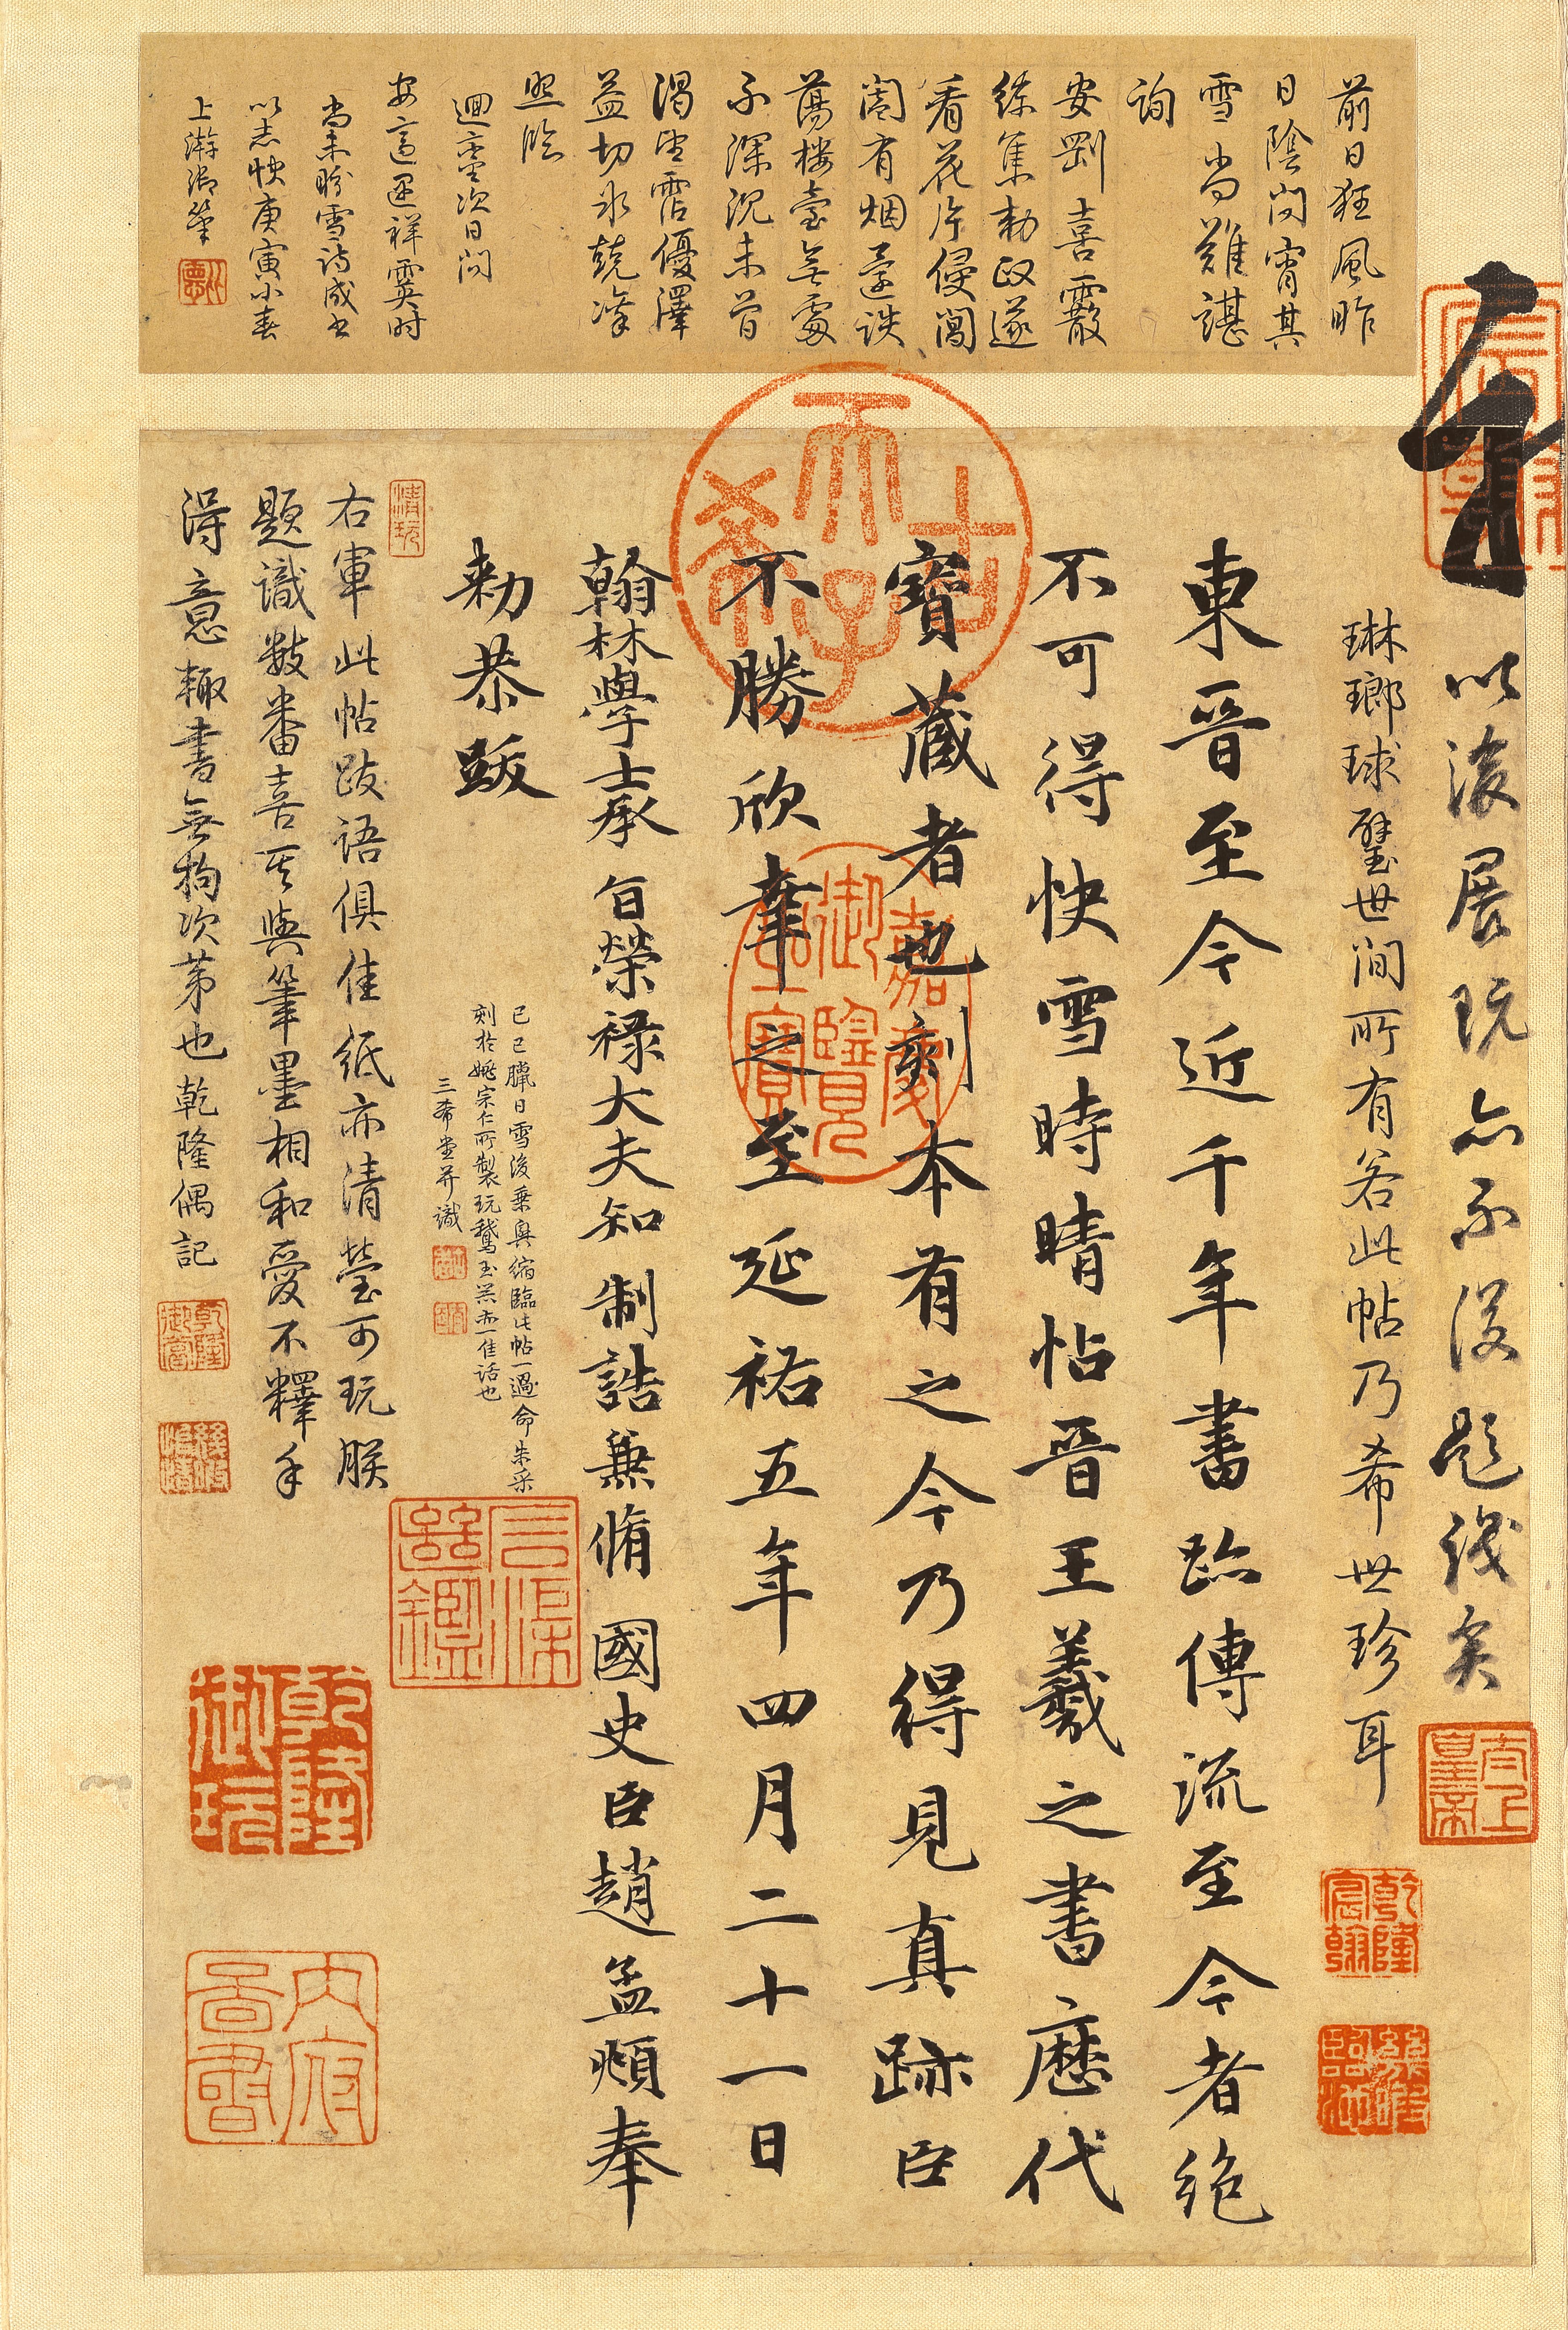 前日狂風昨
日陰問宵其
雪尚難諶
詢
安劉喜霰
繽集勑政遂
看花片侵闖
閤有烟靄詄
蕩樓臺無處
不深沉未曾
渴望霑優澤
益切冰兢凜
照臨
迴鑾次日問
安高運祥霙时
尚未盼雪詩成書
以志快庚寅小春
上澣御筆
以後展玩亦不復題識矣
琳瑯球璧世間所有若此帖乃希世珍耳
太上皇帝
乾隆宸翰
東晉至今近千年書跡傳流至今者絶
不可得快雪時晴帖晉王羲之書歷代
寶藏者也刻本有之今乃得見真跡臣
不勝欣幸之至延祐五年四月二十一日
翰林學士承旨榮祿大夫知制誥兼脩國史臣趙孟頫奉
勅恭跋
古希天子
嘉慶御覽之寶
己巳臘日雪後乗興縮臨此帖一過命朱采
刻於姚宗仁所製玩鵞玉器亦一佳話也
三希堂并識
清玩
右軍此帖跋語俱佳紙亦清瑩可玩朕
題識數番喜其與筆墨相和愛不釋手
得意輙書無拘次第也乾隆偶記
乾隆御玩
內府圖書